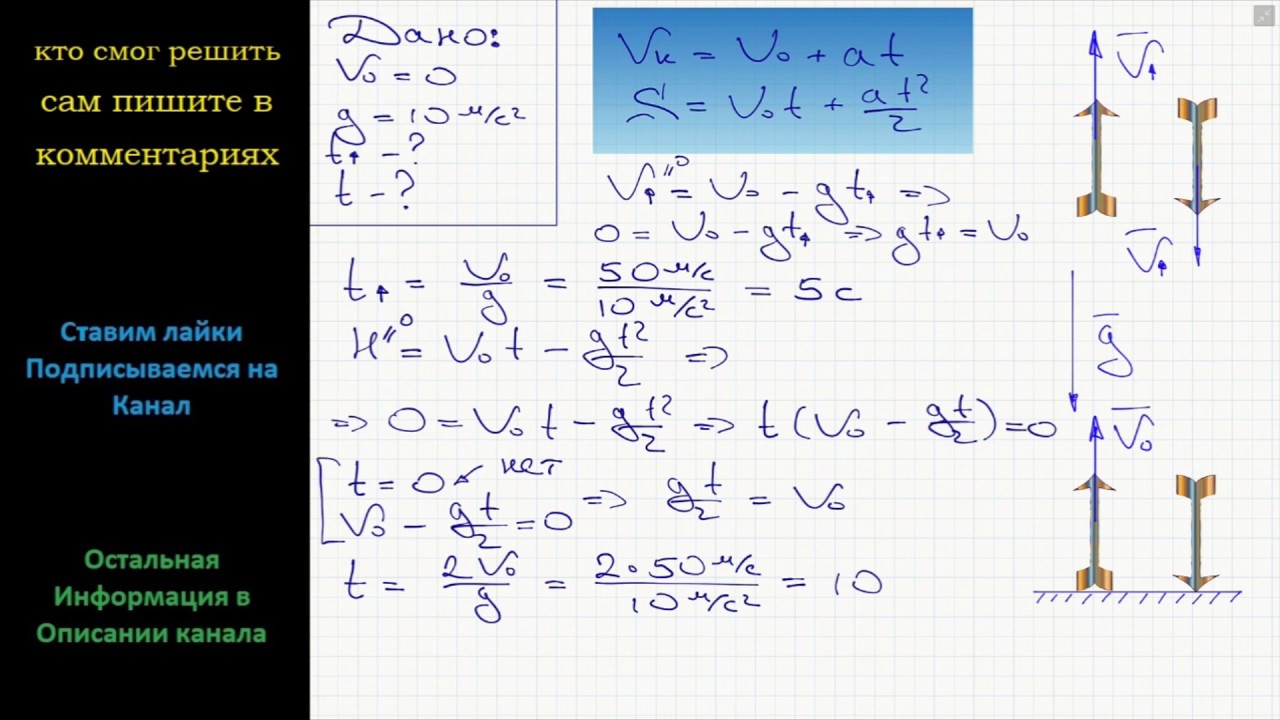 кто смог решить
сам пишите в
комментариях
Ставим лайки
Подписываемся на
Канал
Остальная
Информация в
Описании канала
Дано:
V₀ = 0
g = 10 м/с²
t↑ - ?
t - ?
Vк = V₀ + at
S = V₀t + at²/2
V↑^{//0} = V₀ - gt↑ =>
0 = V₀ - gt↑ => gt↑ = V₀
t↑ = V₀/g = 50 м/с / 10 м/с² = 5 с
H^{//0} = V₀t - gt²/2 =>
=> 0 = V₀t - gt²/2 => t(V₀ - gt/2) = 0
t = 0 ↙ нет
V₀ - gt/2 = 0 => gt/2 = V₀
t = 2V₀/g = 2·50 м/с / 10 м/с² = 10
V↑
V↑
g
V₀